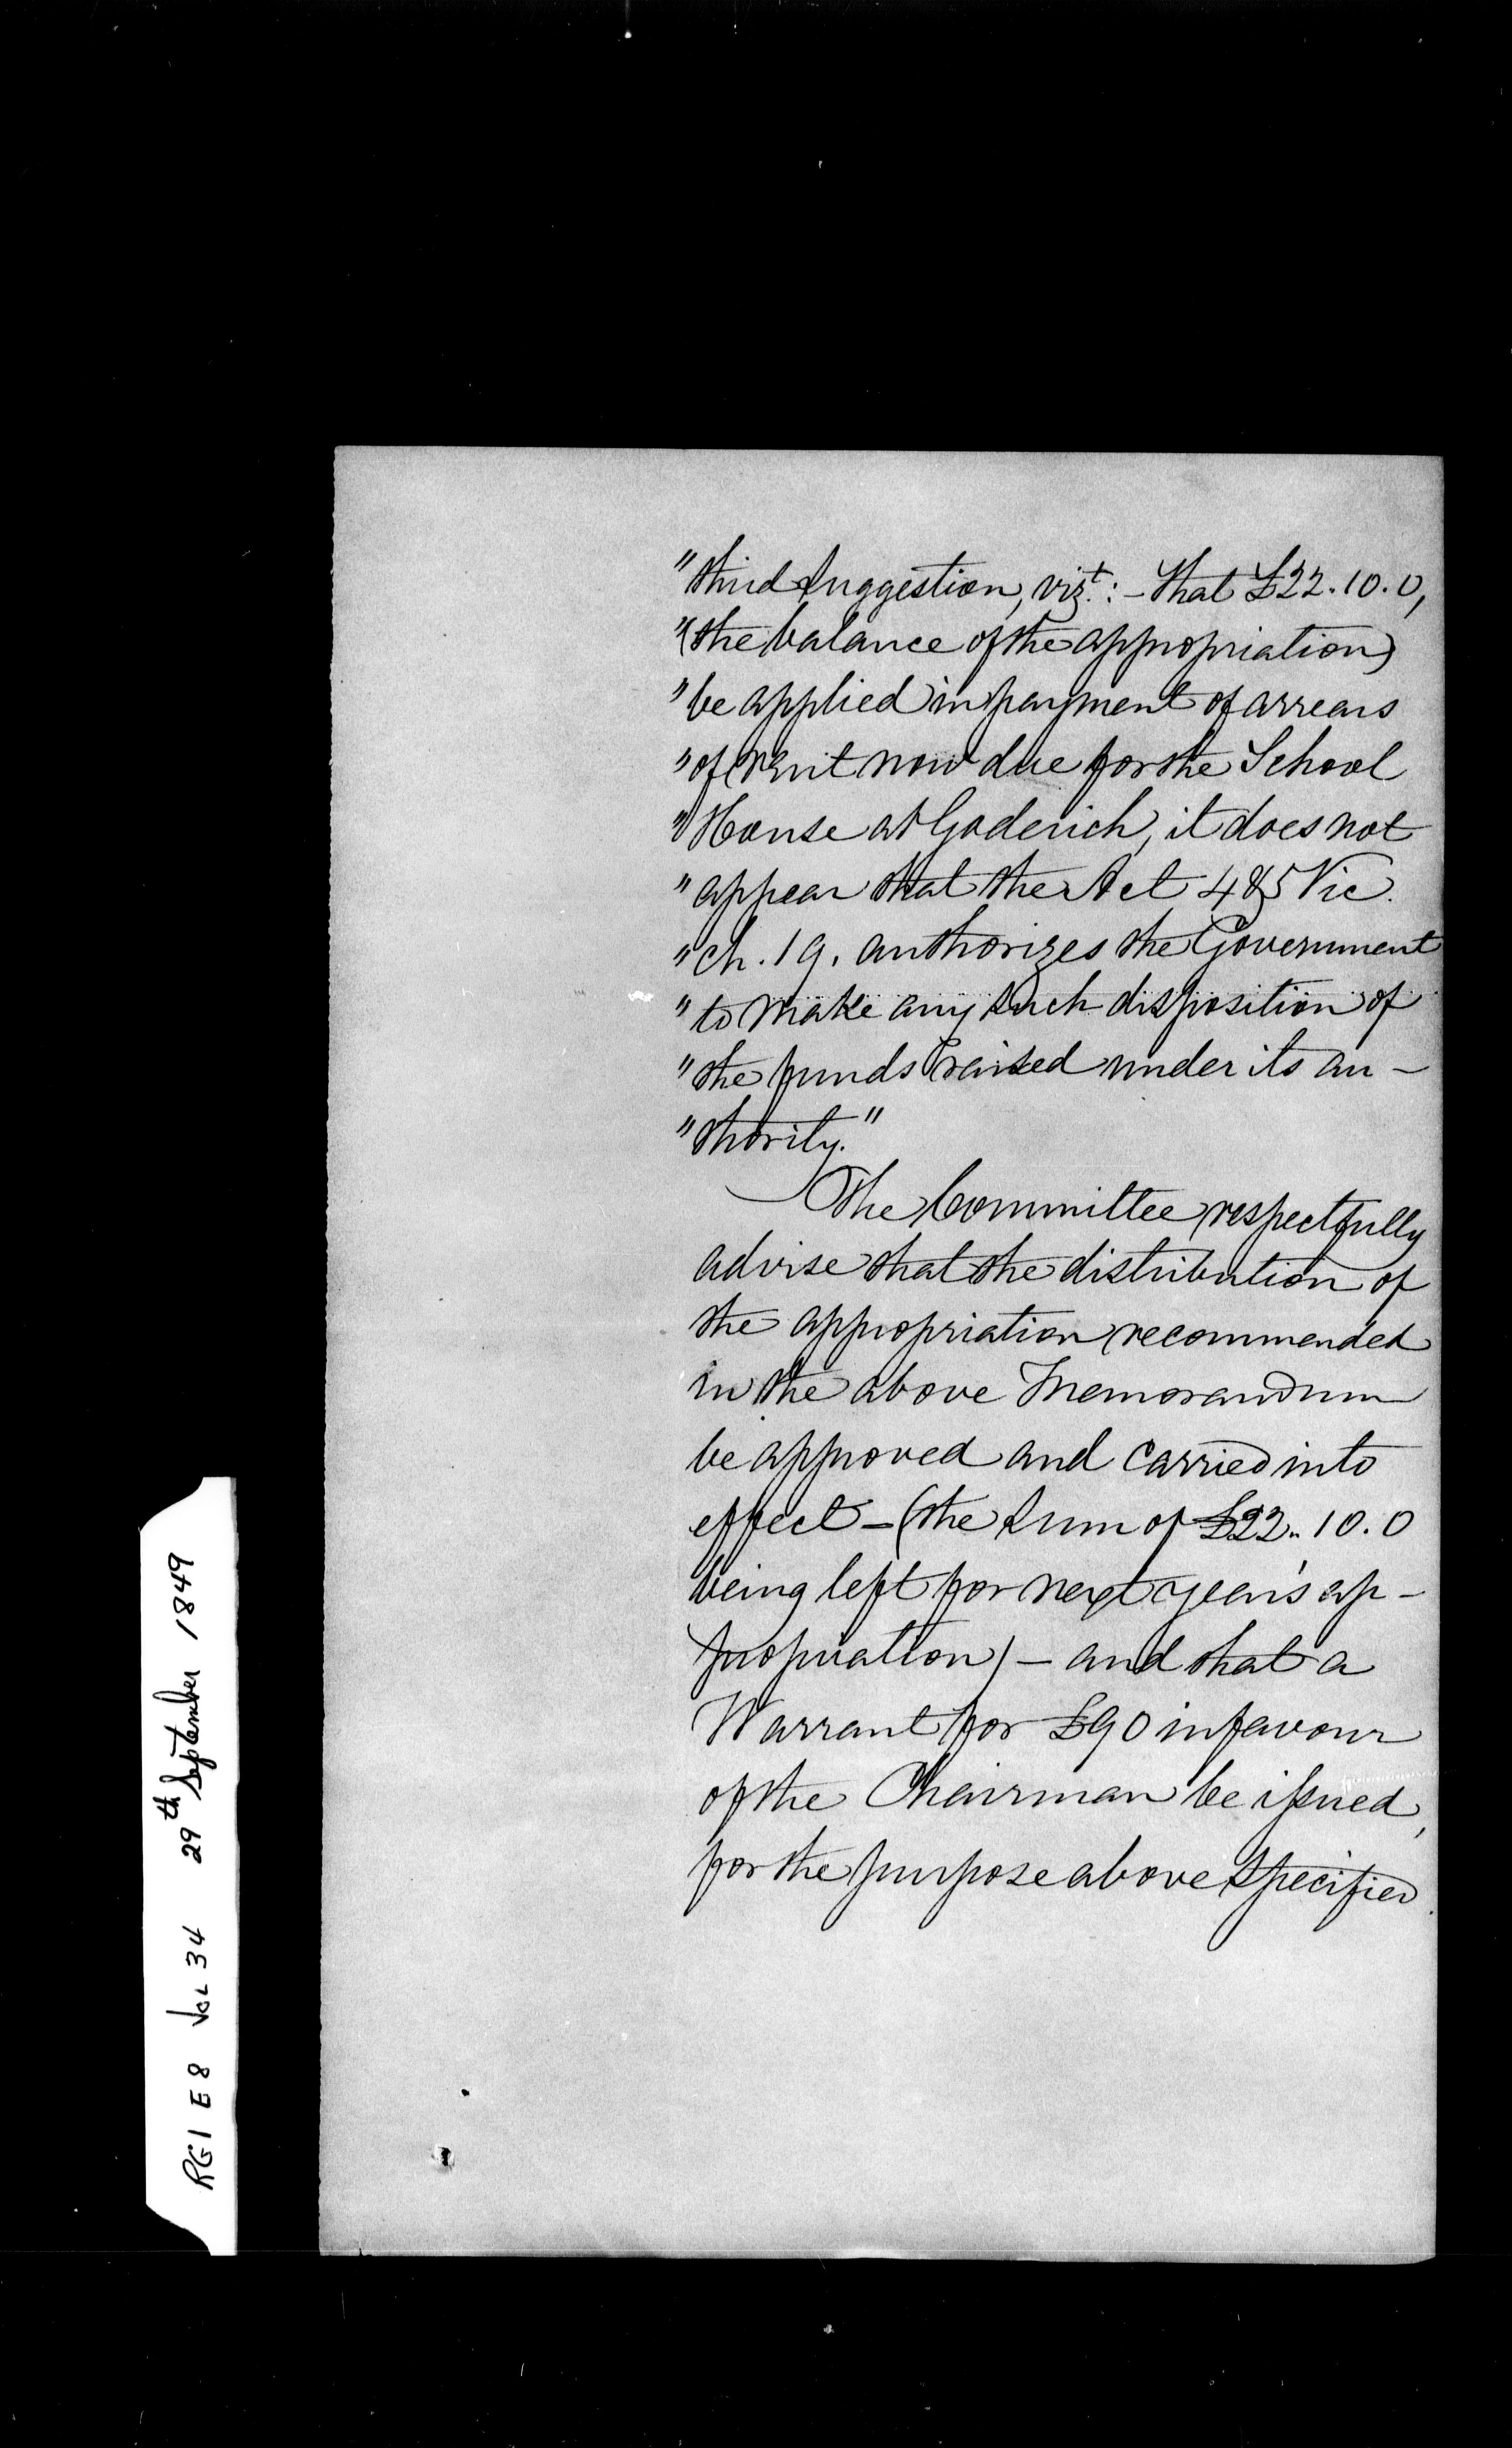 "third Suggestion, vizt: – that £22.10.0,
"(the balance of the appropriation)
"be applied in payment of arrears
"of rent now due for the School
"House at Goderich, it does not
"appear that the Act 4 & 5 Vic.
"ch. 19. authorizes the Government
"to make any such disposition of
"the funds raised under its au-
"thority."
The Committee respectfully
advise that the distribution of
the appropriation recommended
in the above Memorandum
be approved and carried into
effect – (the sum of £22.. 10.0
being left for next year's ap-
propriation) – and that a
Warrant for £90 in favour
of the Chairman be issued,
for the purpose above specified.
RG1 E8 Vol 34 29th September 1849